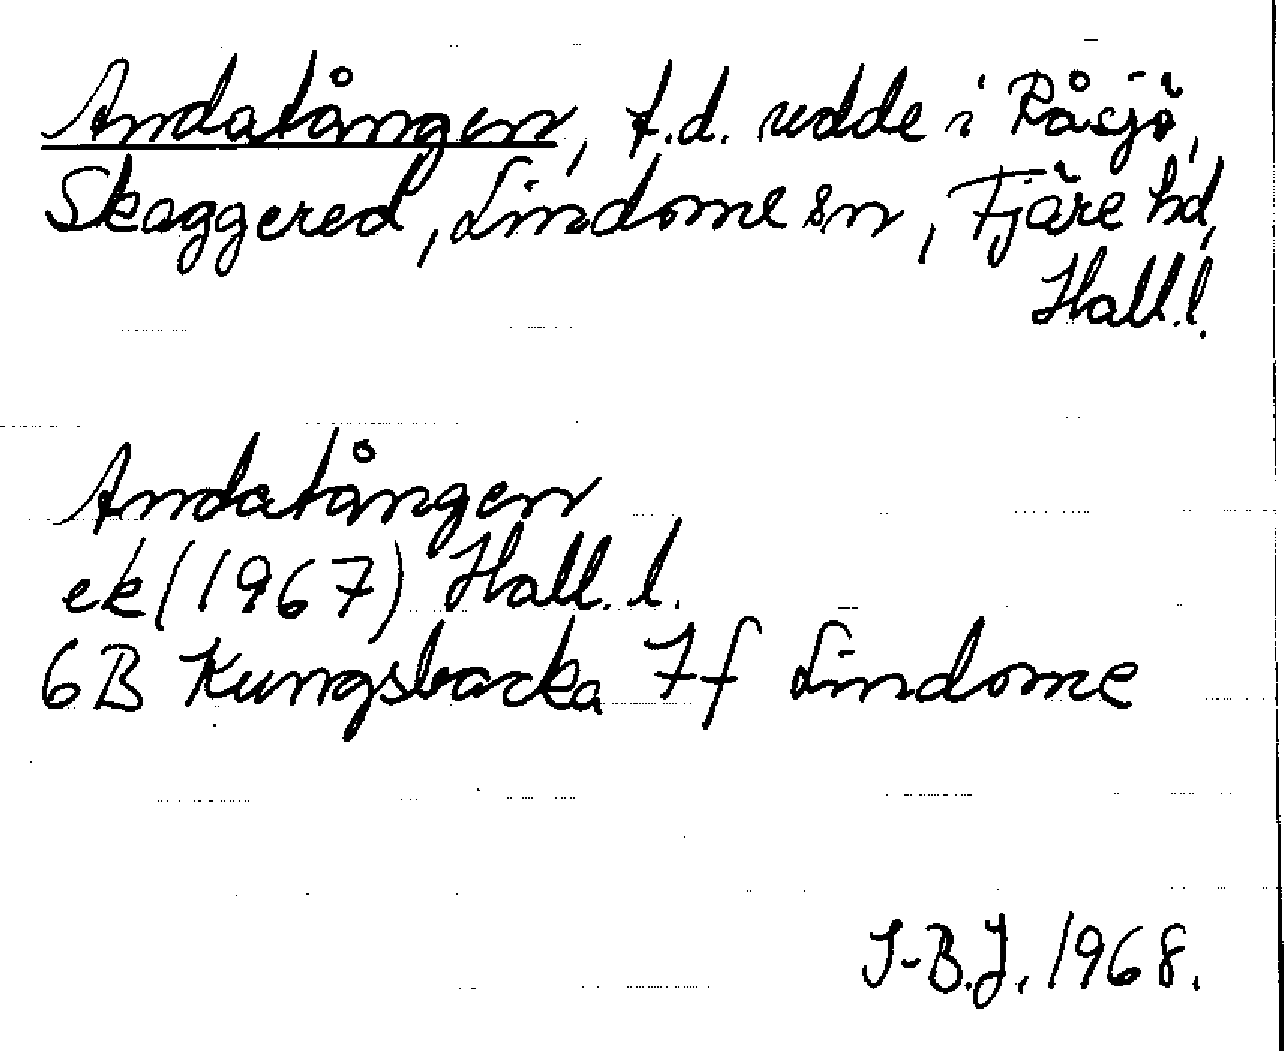 Andatången, f.d. udde i Råsjö,
Skaggered, Lindome sn, Fjäre hd,
Hall.l.
Andatången
ek (1967) Hall. l.
6B Kungsbacka 7f Lindome
I-B.J. 1968.